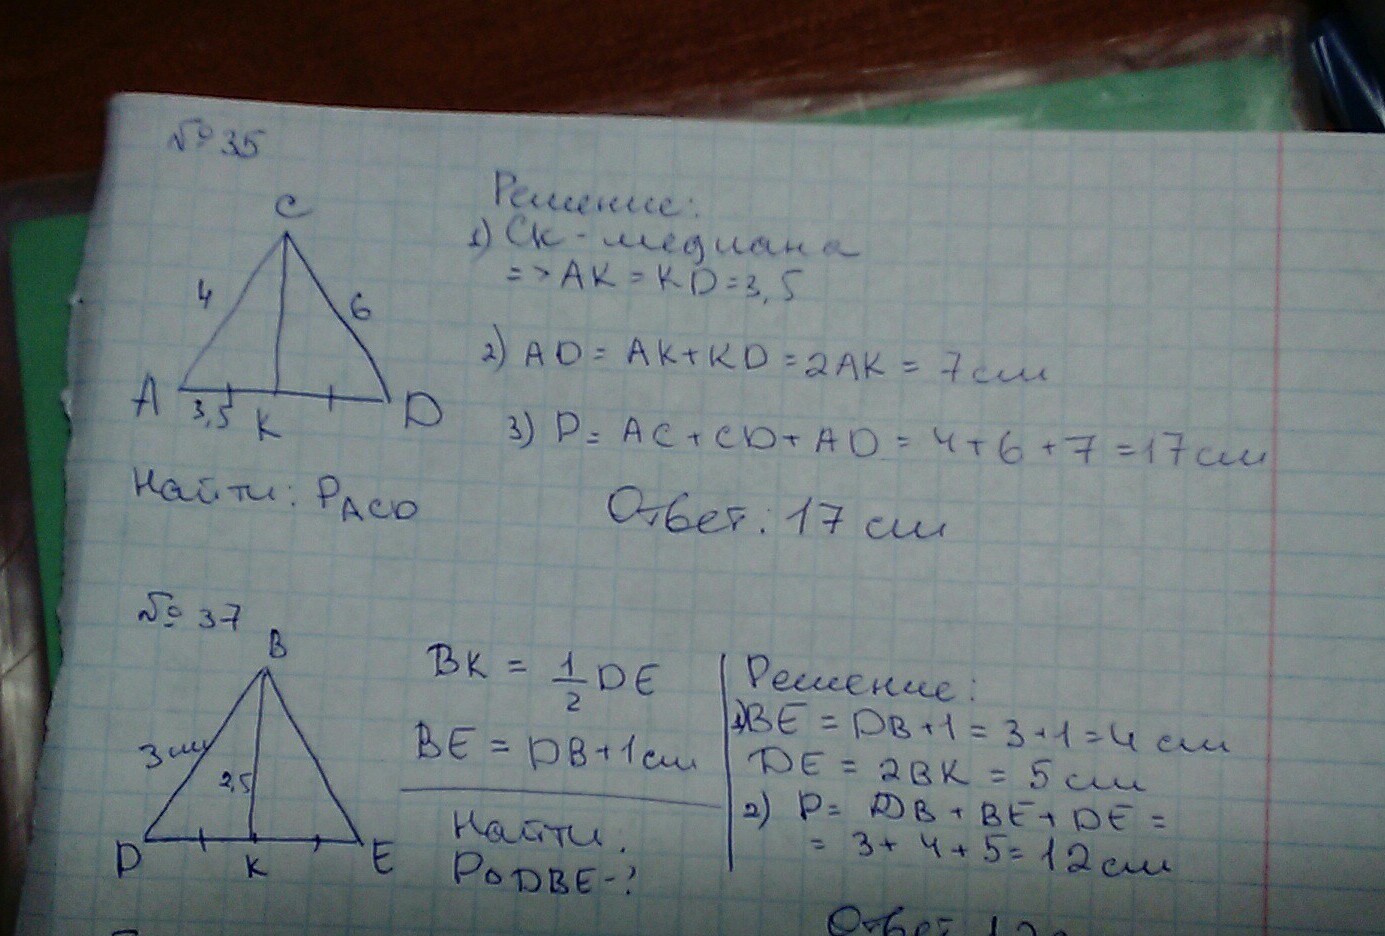 № 35
C
4
6
A
3,5
K
D
Найти: PACD
Решение:
1) CK - медиана
=> AK = KD = 3,5
2) AD = AK + KD = 2AK = 7 см
3) P = AC + CD + AD = 4 + 6 + 7 = 17 см
Ответ: 17 см
№ 37
B
3 см
2,5
D
K
E
BK = 1/2 DE
BE = DB + 1 см
Найти:
P△DBE - ?
Решение:
1) BE = DB + 1 = 3 + 1 = 4 см
DE = 2BK = 5 см
2) P = DB + BE + DE =
= 3 + 4 + 5 = 12 см
Ответ